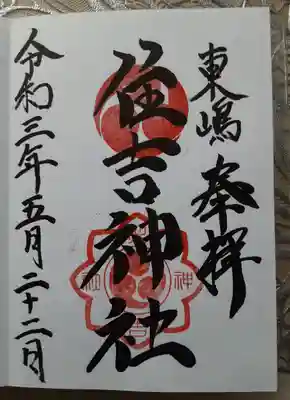 東嶋 奉拝
住吉神社
令和三年五月二十二日